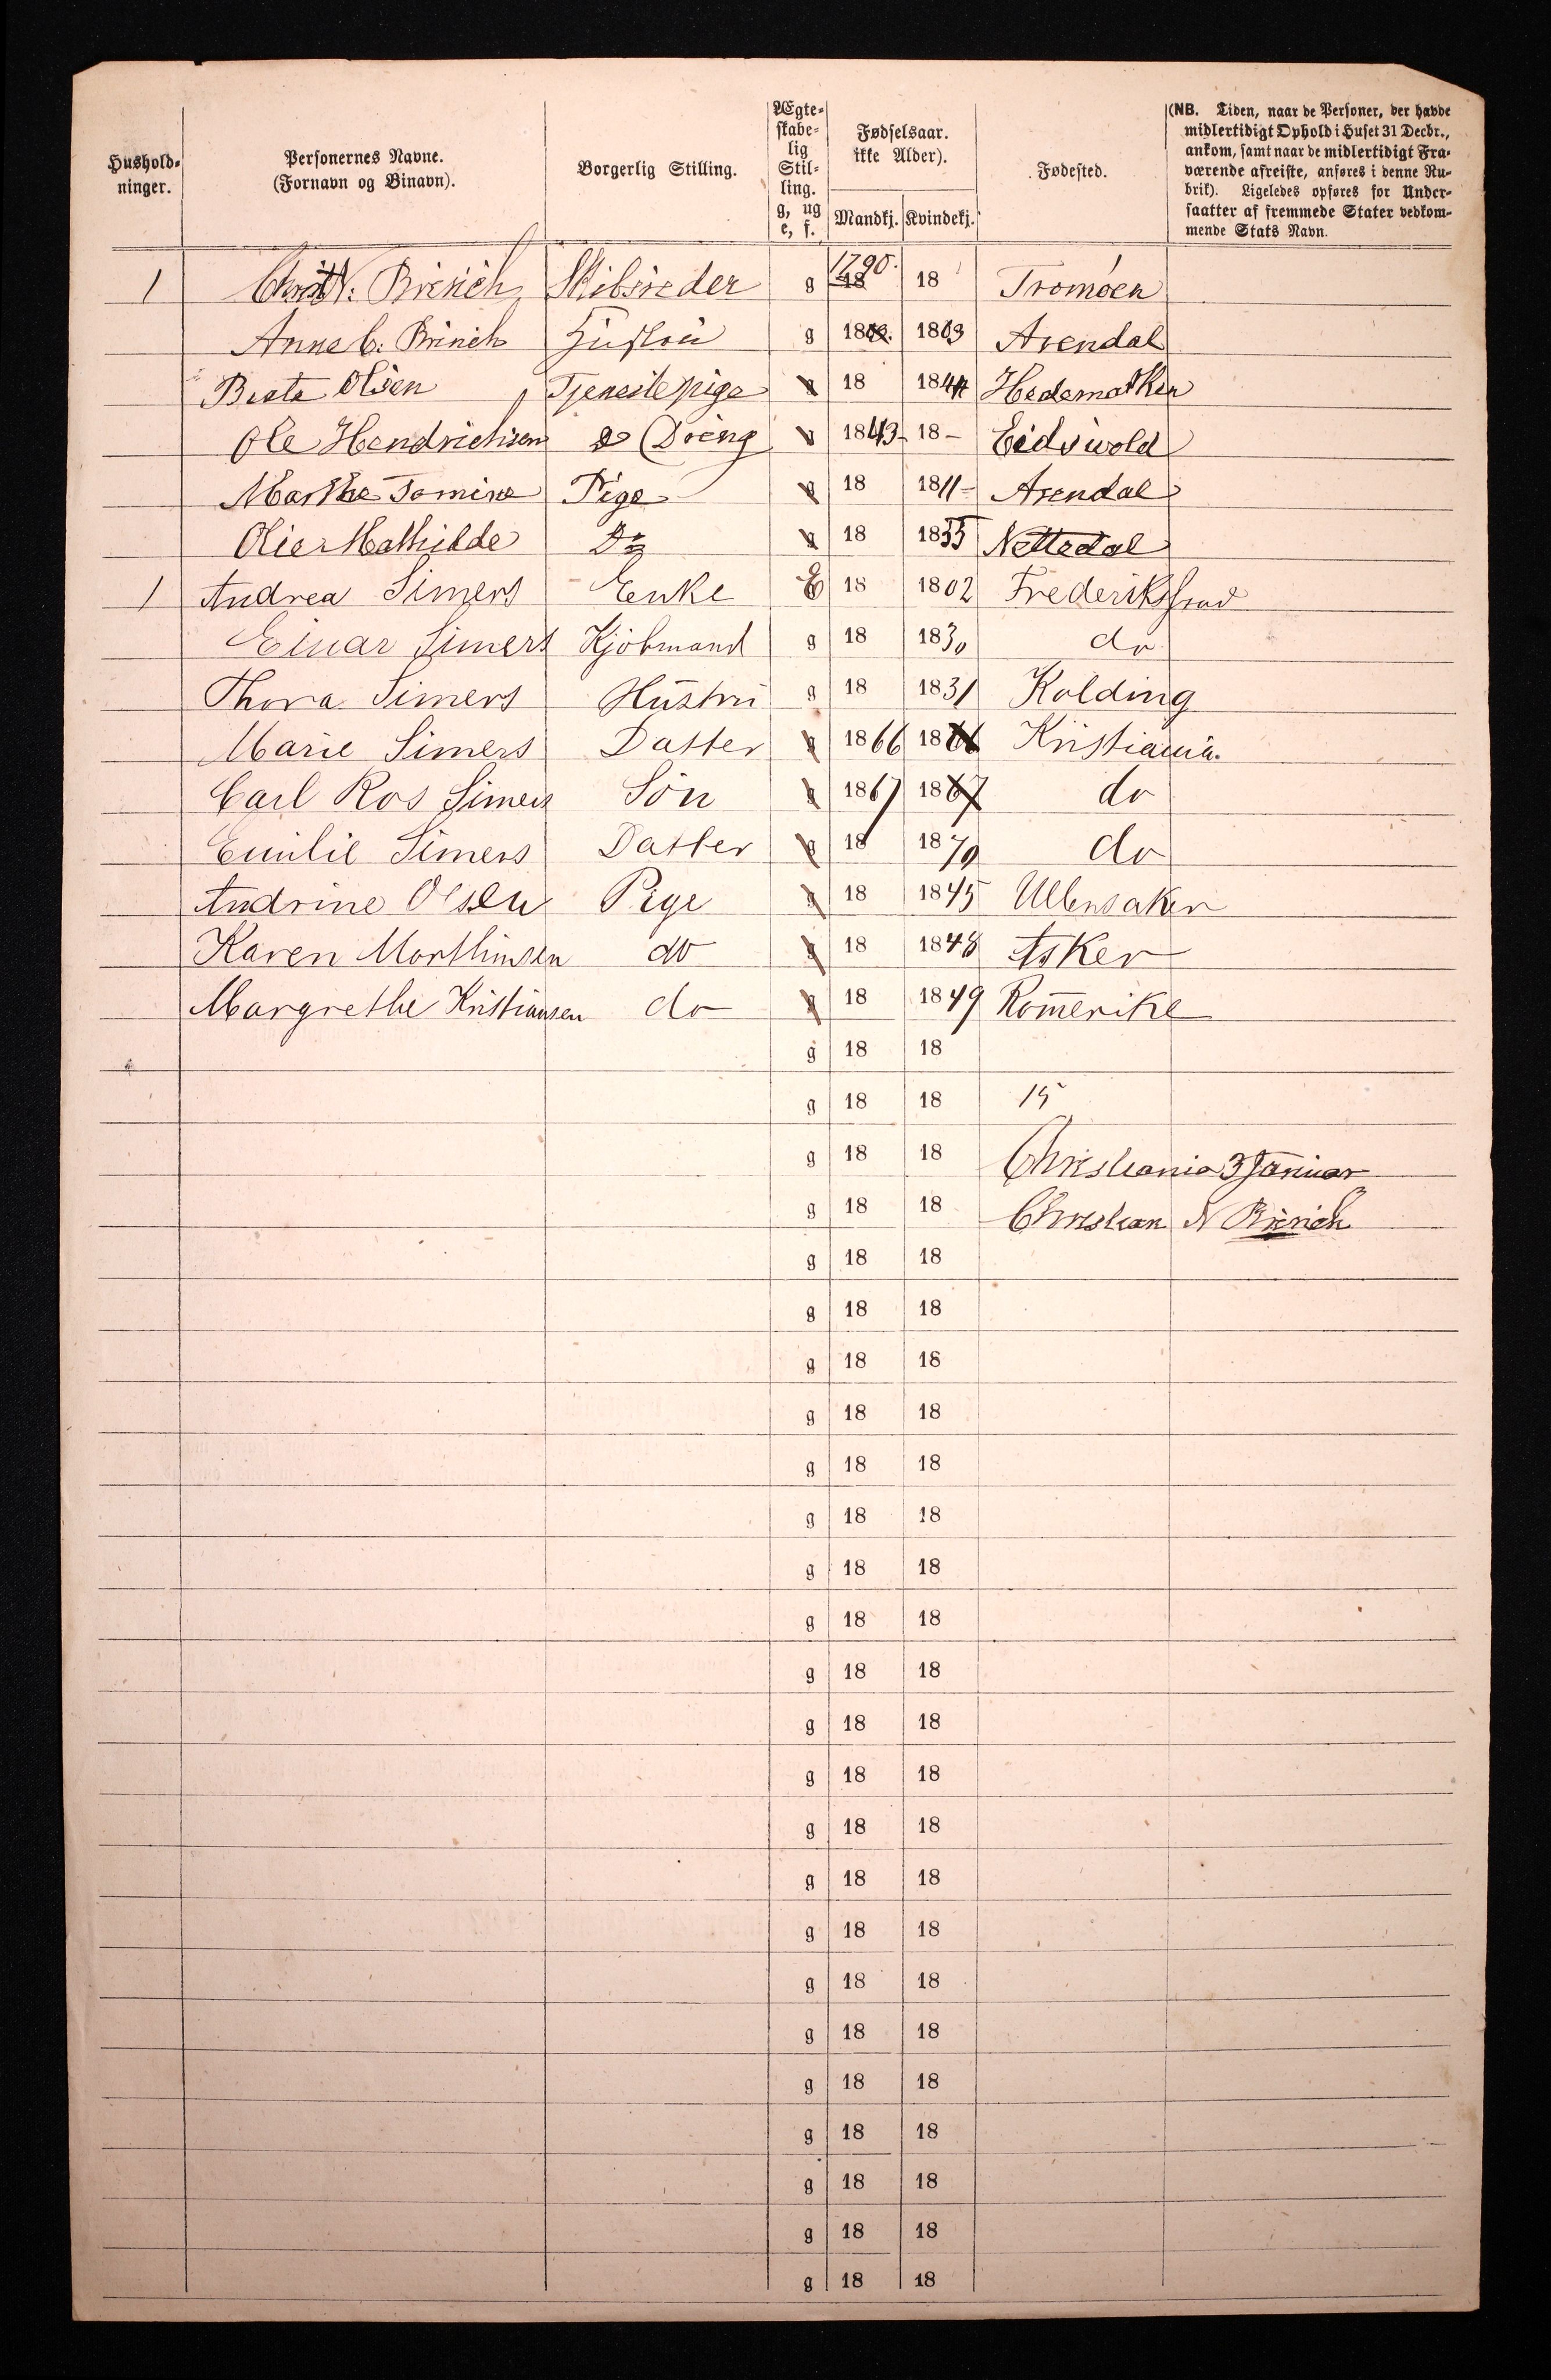 Hushold-
ninger.
Personernes Navne.
(Fornavn og Binavn).
Borgerlig Stilling.
Ægte-
skabe-
lig
Stil-
ling.
g, ug
e, f.
Fødselsaar.
ikke Alder).
Mandkj. Kvindekj.
Fødested.
(NB. Tiden, naar de Personer, der havde
midlertidigt Ophold i Huset 31 Decbr.,
ankom, samt naar de midlertidigt Fra-
værende afreiste, anføres i denne Ru-
brik). Ligeledes opføres for Under-
saatter af fremmede Stater vedkom-
mende Stats Navn.
1 Christ N: Brinich Skibsreder g 1790. 18 18 Tromöen
Anne C. Brinich Hustru g 1803. 1803 Arendal
Beate Olsen Tjenestepige g 18 1844 Hedemarken
Ole Hendrichsen Do (Dreng g 1843- 18- Eidsivold
Marthe Tomine Pige g 18 1811- Arendal
Olie Mathilde Do g 18 1835 Nettedal
1 Andrea Simers Enke E 18 1802 Frederikstad
Einar Simers Kjöbmand g 18 1830 do
Thora Simers Hustru g 18 1831 Kolding
Marie Simers Datter g 1866 1866 Kristiania.
Carl Ros Simers Sön g 1867 1867 do
Emilie Simers Datter g 18 1870 do
Andrine Olsen Pige g 18 1845 Ullensaker
Karen Morthinsen do g 18 1848 Asker
Margrethe Kristiansen do g 18 1849 Romerike
g 18 18
g 18 18 15
g 18 18 Christiania 3 Januar
g 18 18 Christian N Brinich
g 18 18
g 18 18
g 18 18
g 18 18
g 18 18
g 18 18
g 18 18
g 18 18
g 18 18
g 18 18
g 18 18
g 18 18
g 18 18
g 18 18
g 18 18
g 18 18
g 18 18
g 18 18
g 18 18
g 18 18
g 18 18